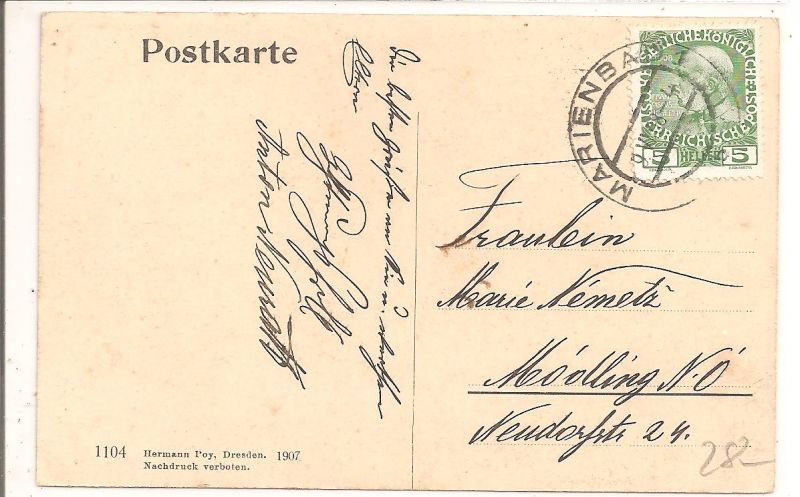 Postkarte
Die besten Grüße an Sie u.
Eltern
Anton
MARIENBAD 1
KAISERLICHE KÖNIGLICHE
ÖSTERREICHISCHE POST
5 HELLER 5
Fräulein
Marie Németz
Mödling N.Ö
Neudorfstr 24.
282-
1104 Hermann Poy, Dresden. 1907
Nachdruck verboten.